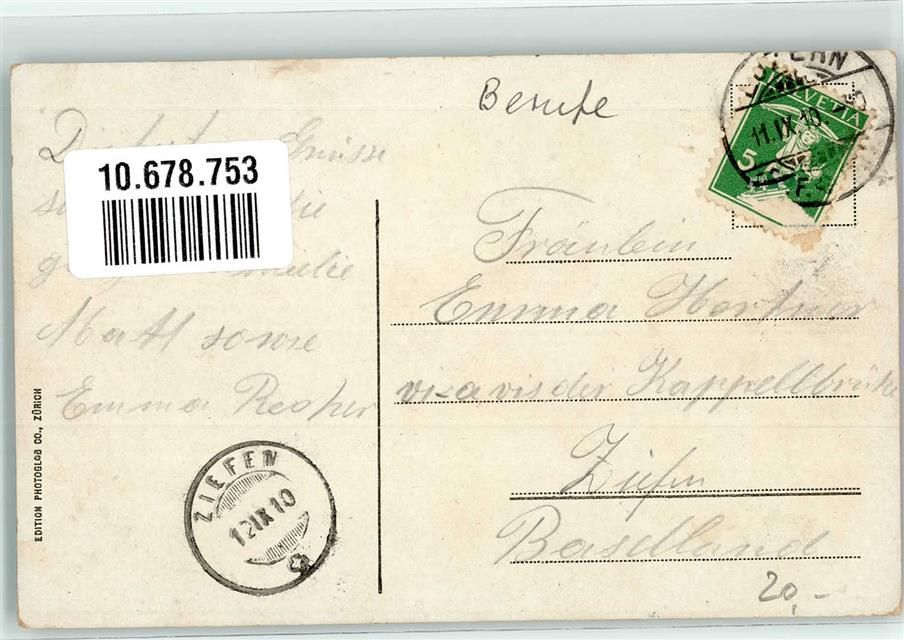 Berufe
10.678.753
Grüsse
die
Matt sowie
Emma
EDITION PHOTOGLOB CO., ZÜRICH
ZIEFEN
12 IX 10
HELVETIA
5
11.IX.10
Fräulein
Emma
vis a vis der Kappellbrücke
Ziefen
Baselland
20,-